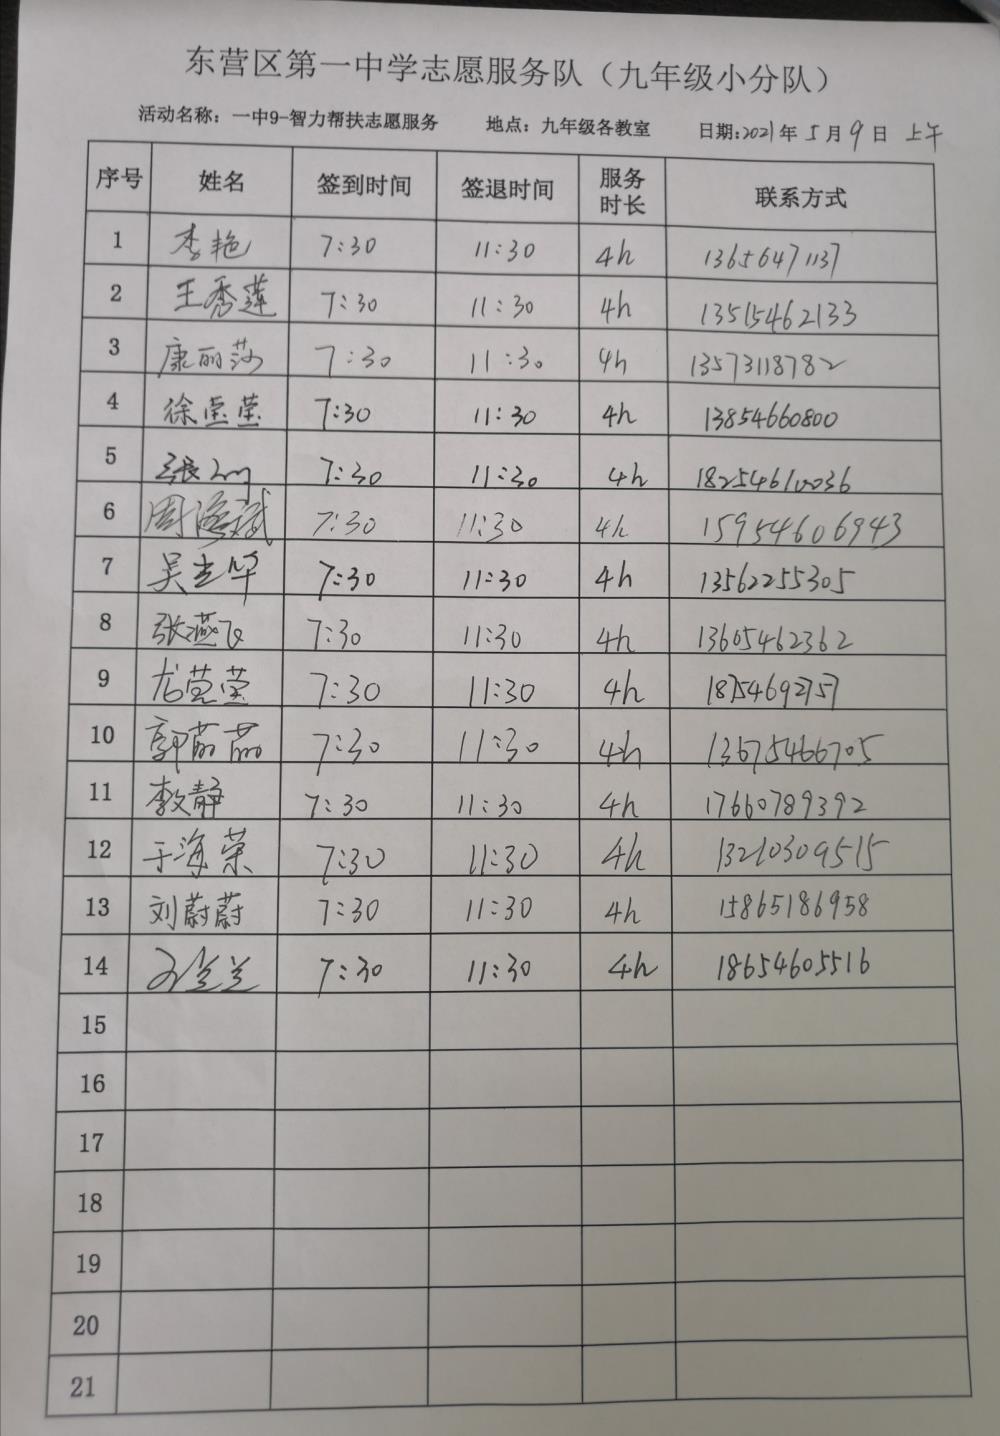 东营区第一中学志愿服务队（九年级小分队）
活动名称：一中9-智力帮扶志愿服务 地点：九年级各教室 日期:2021年5月9日 上午
序号 姓名 签到时间 签退时间 服务时长 联系方式
1 李艳 7:30 11:30 4h 13656471137
2 王秀莲 7:30 11:30 4h 13515462133
3 康丽莎 7:30 11:30 4h 13573118782
4 徐莹莹 7:30 11:30 4h 13854660800
5 张 7:30 11:30 4h 18254610036
6 周海斌 7:30 11:30 4h 15954606943
7 吴立华 7:30 11:30 4h 13562255305
8 张燕飞 7:30 11:30 4h 13605462362
9 尤莹莹 7:30 11:30 4h 18754692757
10 郭丽丽 7:30 11:30 4h 13675466705
11 李文静 7:30 11:30 4h 17660789392
12 于海荣 7:30 11:30 4h 13210309515
13 刘蔚蔚 7:30 11:30 4h 15865186958
14 兰兰 7:30 11:30 4h 18654605516
15
16
17
18
19
20
21